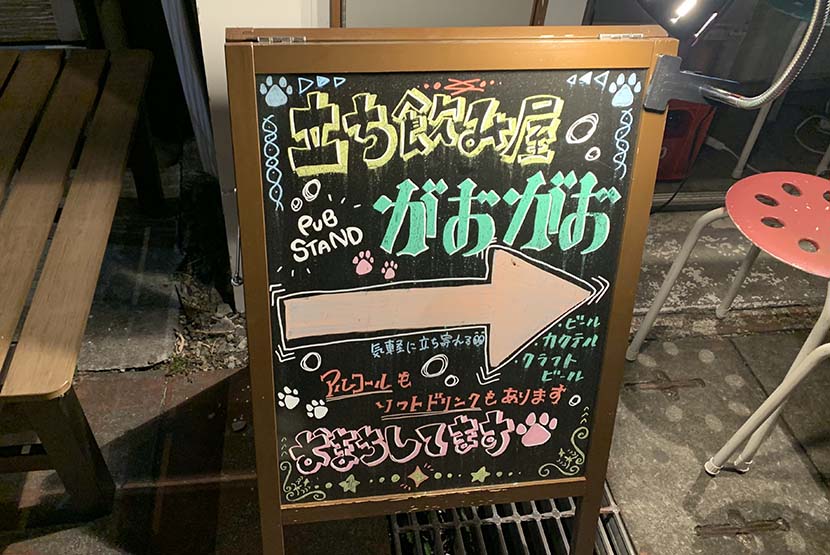 立ち飲み屋
PUB
STAND
がおがお
気軽に立ち寄れる
・ビール
・カクテル
・クラフト
ビール
アルコールも
ソフトドリンクもあります
おまちしてます